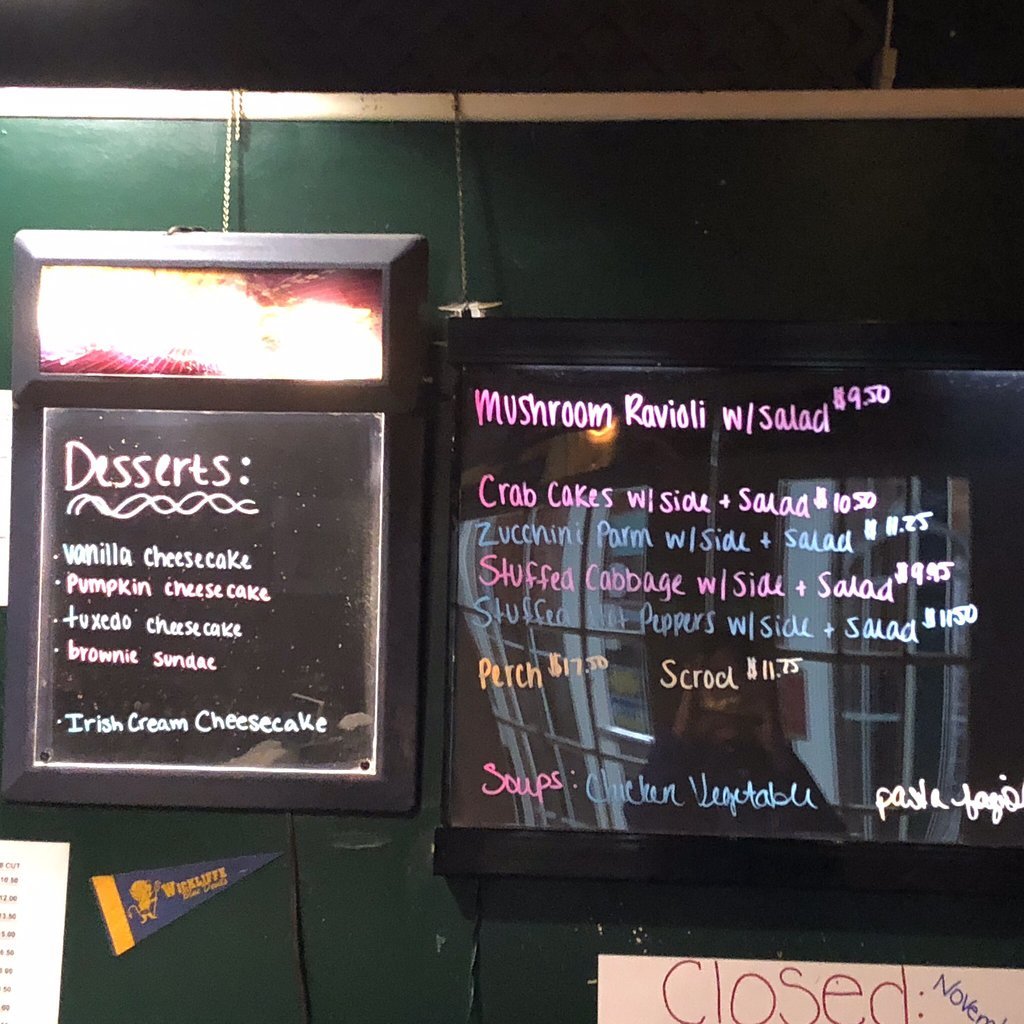 Desserts:
· vanilla cheesecake
· Pumpkin cheesecake
· tuxedo cheesecake
· brownie sundae
· Irish Cream Cheesecake
Mushroom Ravioli w/salad $9.50
Crab Cakes w/side + Salad $10.50
Zucchini Parm w/side + salad $11.25
Stuffed Cabbage w/Side + Salad $9.95
Stuffed Hot Peppers w/side + salad $11.50
Perch $17.50 Scrod $11.75
Soups: Chicken Vegetable pasta
WICKLIFFE
Blue Devils
CUT
10.50
12.00
13.50
Closed: